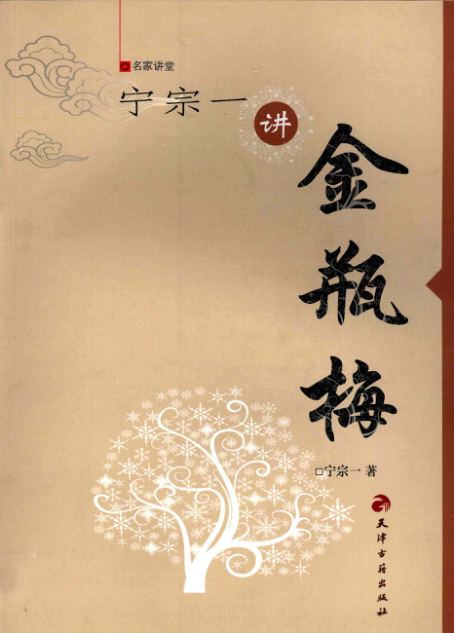 名家讲堂
宁宗一
讲
金瓶梅
宁宗一 著
天津古籍出版社